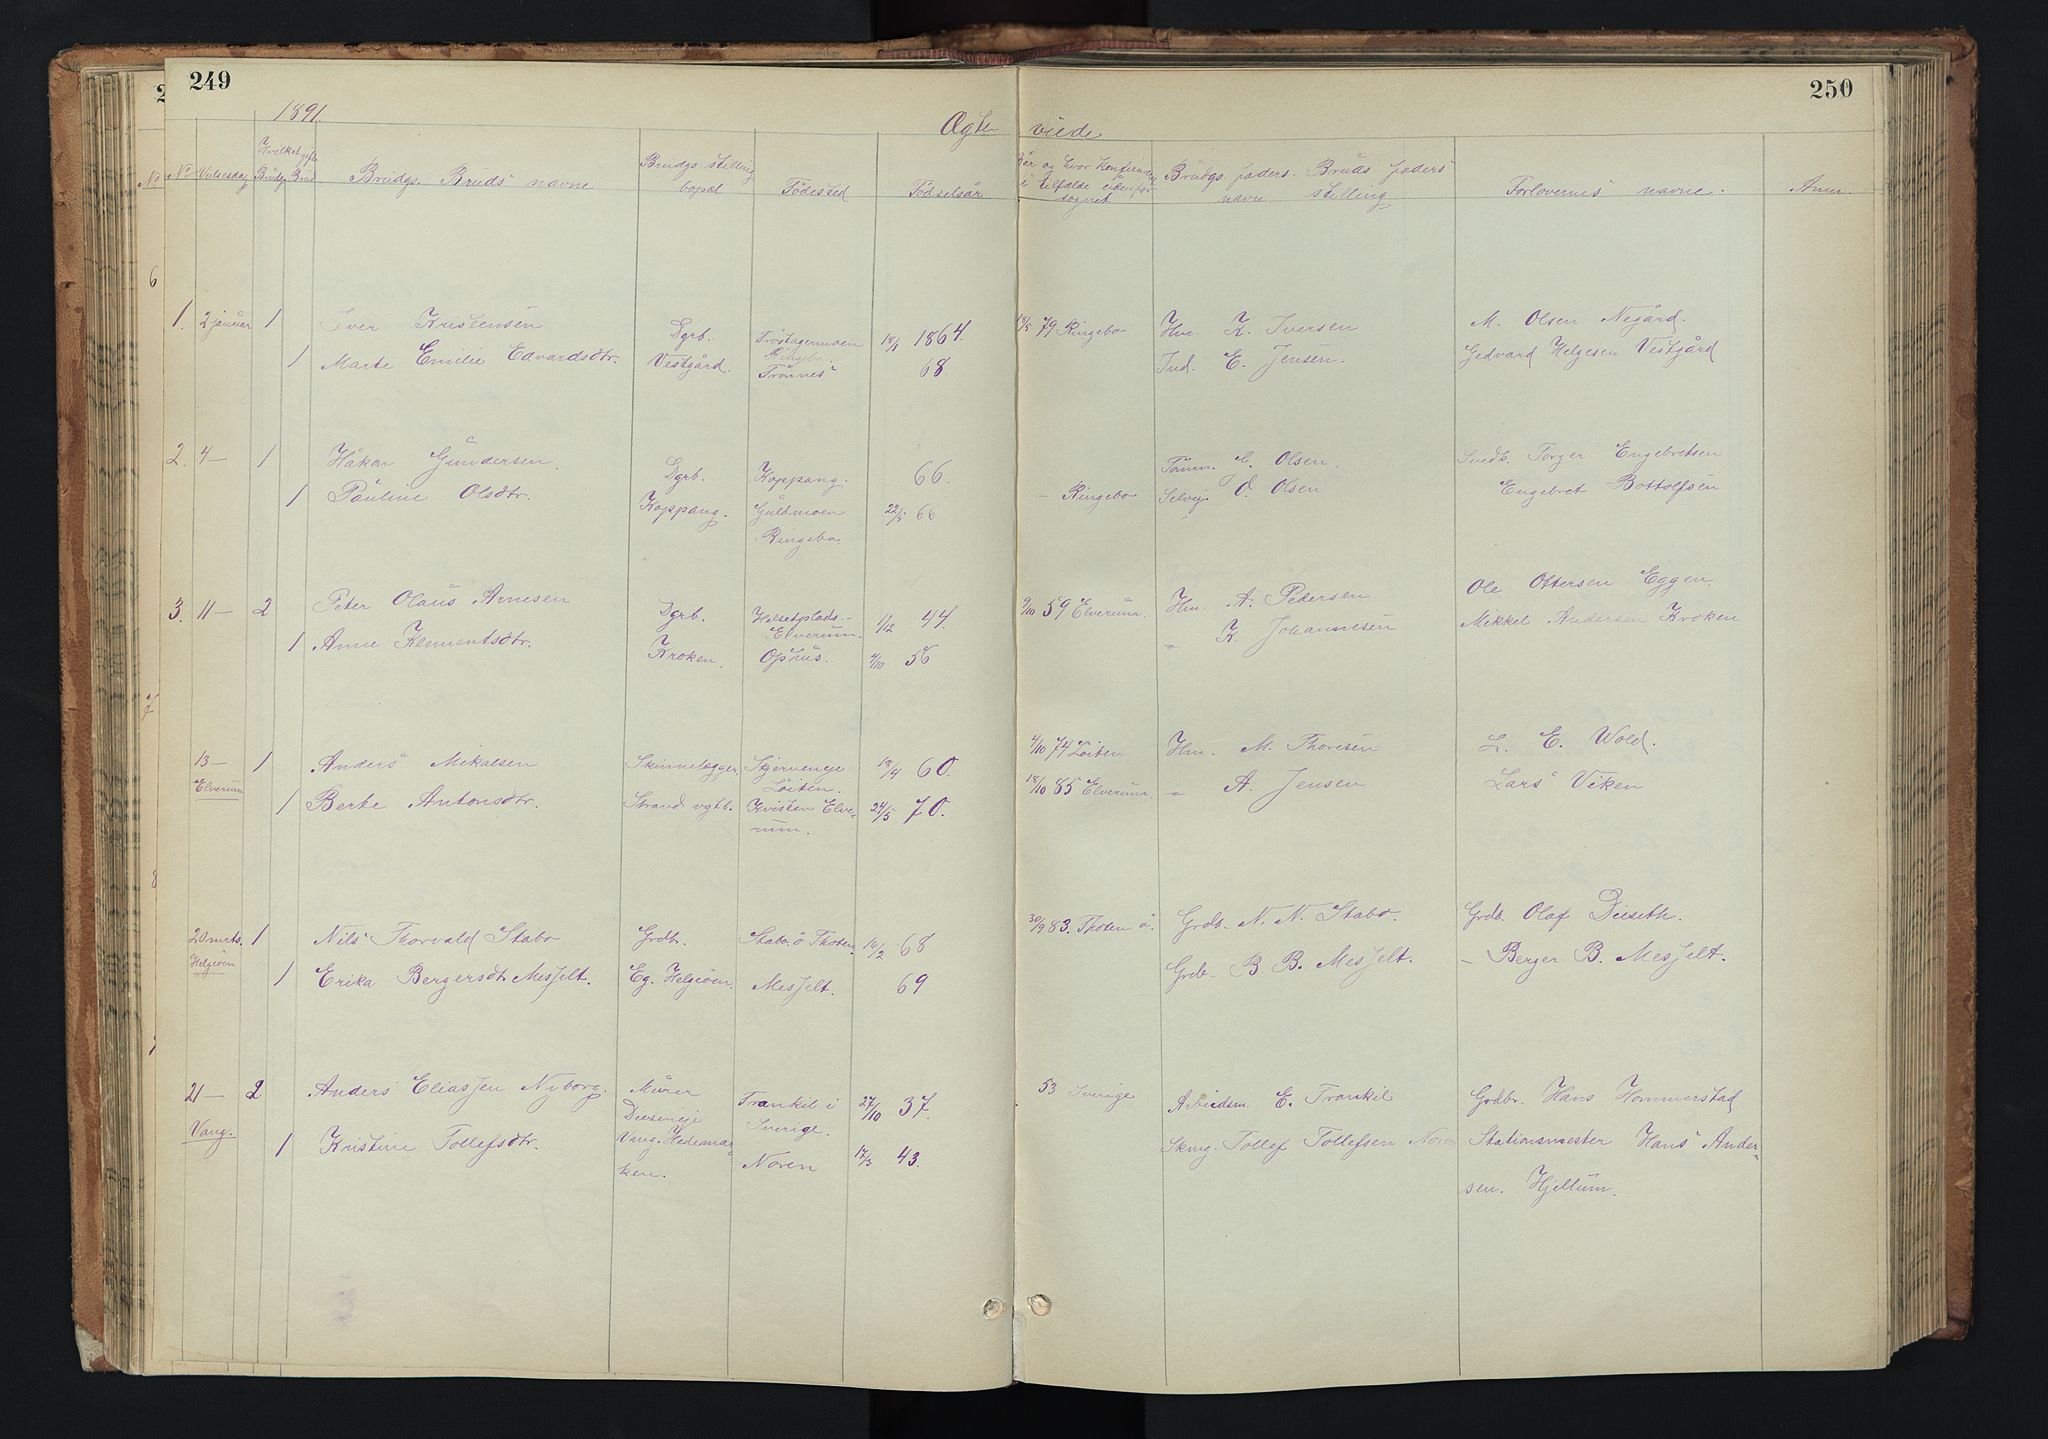 249
250
1891.
Ægte viede
No
No Vielsesdag Hvilket gifte Brudg. Brud Brudgs. Bruds navne Brudgs stilling bopæl Fødested Fødselsår
År og hvor konfirmeret i tilfælde udenfor sognet Brudgs faders - Bruds faders navne stilling Forlovernes navne. Anm.
6
1. 2 januar 1 Iver Kristensen Dgrb. Trøstagermoen Ringebo 18/1 1864. 18/5 79 Ringebo Hm. K. Iversen M. Olsen Negård.
1 Marte Emilie Edvardsdtr. Vestgård. Trønnes 68. Ind. E. Jensen. Gedvard Helgesen Vestgård
2. 4 — 1 Håkon Gundersen. Dgrb. Koppang. 66. Tømm. G. Olsen. Snedk. Torger Engebretsen
1 Pauline Olsdtr. Koppang. Gulbmoen Ringebo. 22/5 66 - Ringebo Selvej. O. Olsen Engebret Bottolfsen
3. 11 — 2 Peter Olaus Arnesen Dgrb. Helsetplads. Elverum. 1/12 44. 9/10 59 Elverum. Hm. A. Pedersen Ole Ottersen Eggen.
1 Anne Klementsdtr. Kroken. Ophus. 4/10 56 „ K. Johannesen Mikkel Andersen Kroken
13 — Elverum 1 Anders Mikalsen Skinnelægger. Skjerveneje Løiten. 13/4 60. 4/10 74 Løiten Hm. M. Thoresen L. E. Wold.
1 Berte Antonsdtr. Strand vgtb. Kvisten Elverum. 24/5 70. 18/10 85 Elverum. „ A. Jensen Lars Viken
8
20 mrts. Helgeøen 1 Nils Thorvald Stabo Grdbr. Stabo ø Thoten. 10/2 68 30/9 83. Thoten ø. Grdb. N. N. Stabo. Grdb. Olaf Diseth.
1 Erika Bergersdt. Mesfelt. Eg. Helgeøen. Mesfelt. 69 Grdb. B. B. Mesfelt. — Berger B. Mesfelt.
21 — Vang. 2 Anders Eliassen Nyborg. Murer Trankil i Sverige. 27/10 37. 53 Sverige Arbeidsm. E. Trankil Grdbr. Hans Hommerstad
1 Kristine Tollefsdtr. Vang. Hedemarken. Noren 17/3 43. Skmg. Tollef Tollefsen Noren Stationsmester Hans Andersen. Hjellum.